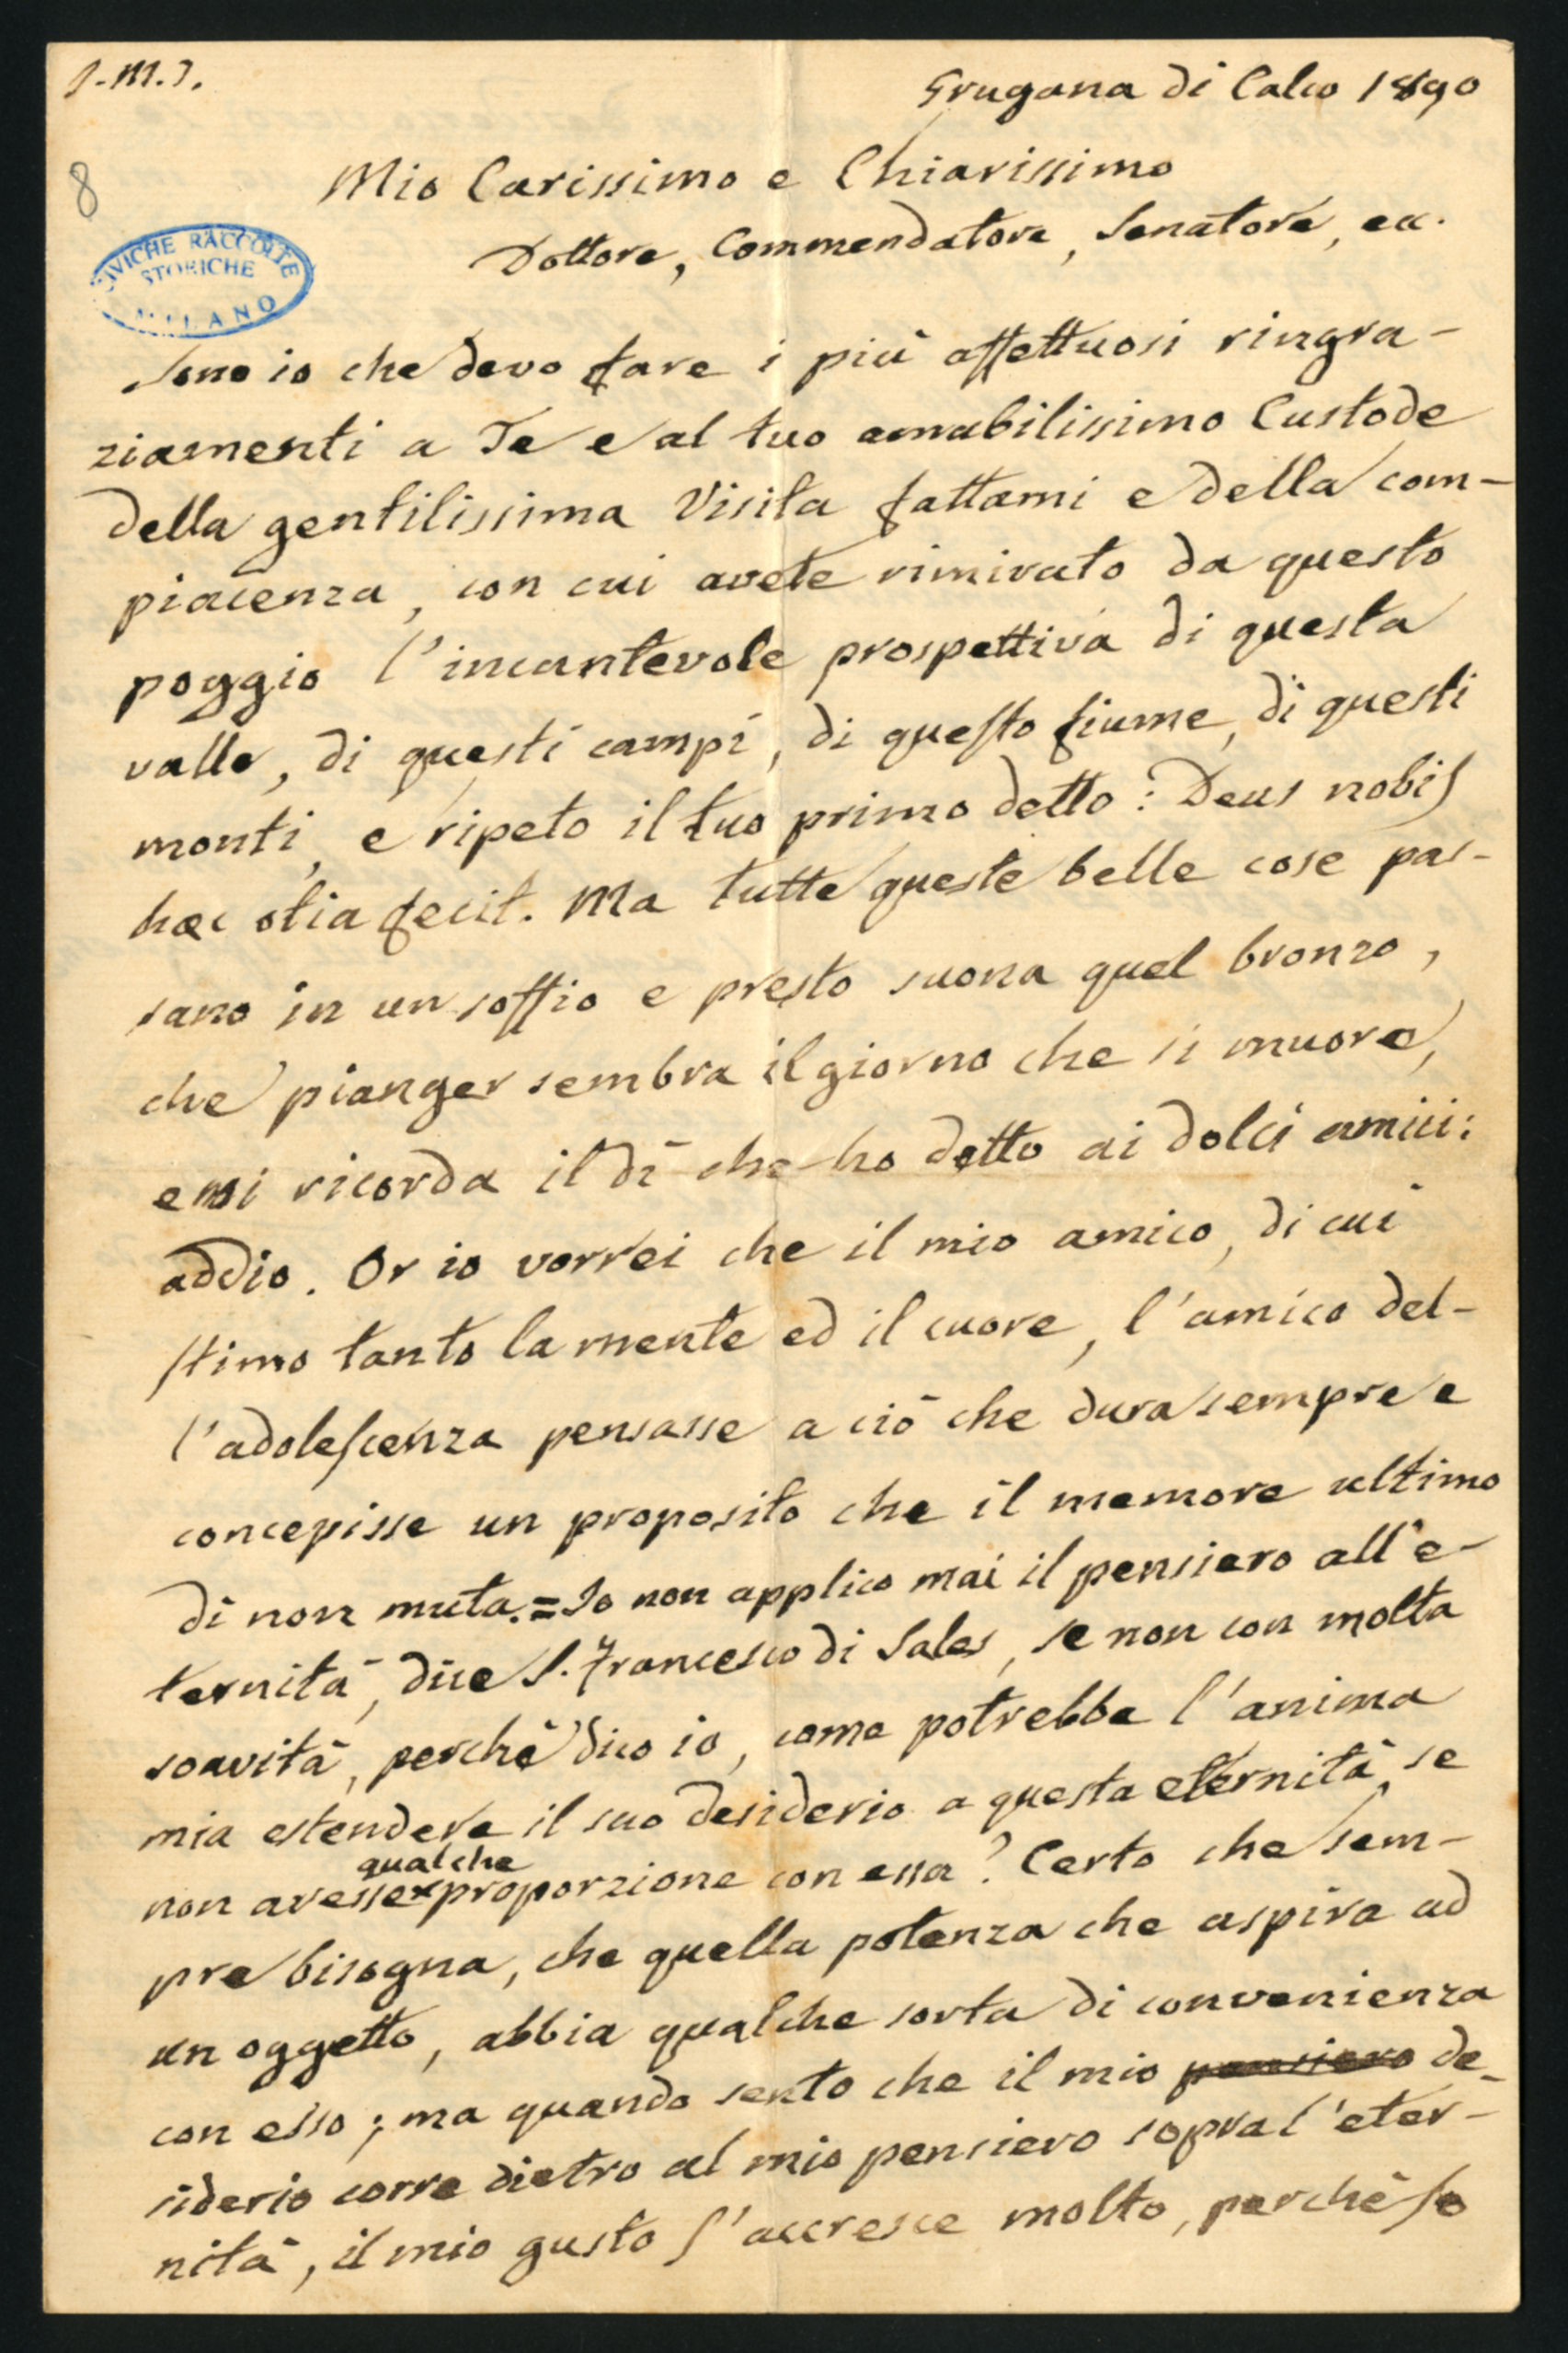 J.M.J.
Grugana di Calco 1890
8
Mio Carissimo e Chiarissimo
Dottore, Commendatore, Senatore, ecc.
CIVICHE RACCOLTE
STORICHE
MILANO
Sono io che devo fare i più affettuosi ringra-
ziamenti a Te e al tuo amabilissimo Custode
della gentilissima Visita fattami e della com-
piacenza, con cui avete rimirato da questo
poggio l'incantevole prospettiva di questa
valle, di questi campi, di questo fiume, di questi
monti, e ripeto il tuo primo detto: Deus nobis
haec otia fecit. Ma tutte queste belle cose pas-
sano in un soffio e presto suona quel bronzo,
che pianger sembra il giorno che si muore,
e mi ricorda il dì che ho detto ai dolci amici:
addio. Or io vorrei che il mio amico, di cui
stimo tanto la mente ed il cuore, l'amico del-
l'adolescenza pensasse a ciò che dura sempre e
concepisse un proposito che il memore ultimo
dì non muta. = Io non applico mai il pensiero all'e-
ternità, dice S. Francesco di Sales, se non con molta
soavità, perchè dico io, come potrebbe l'anima
mia estendere il suo desiderio a questa eternità, se
non avesse qualche proporzione con essa? Certo che sem-
pre bisogna, che quella potenza che aspira ad
un oggetto, abbia qualche sorta di convenienza
con esso; ma quando sento che il mio pensiero de-
siderio corre dietro al mio pensiero sopra l'eter-
nità, il mio gusto s'accresce molto, perchè so